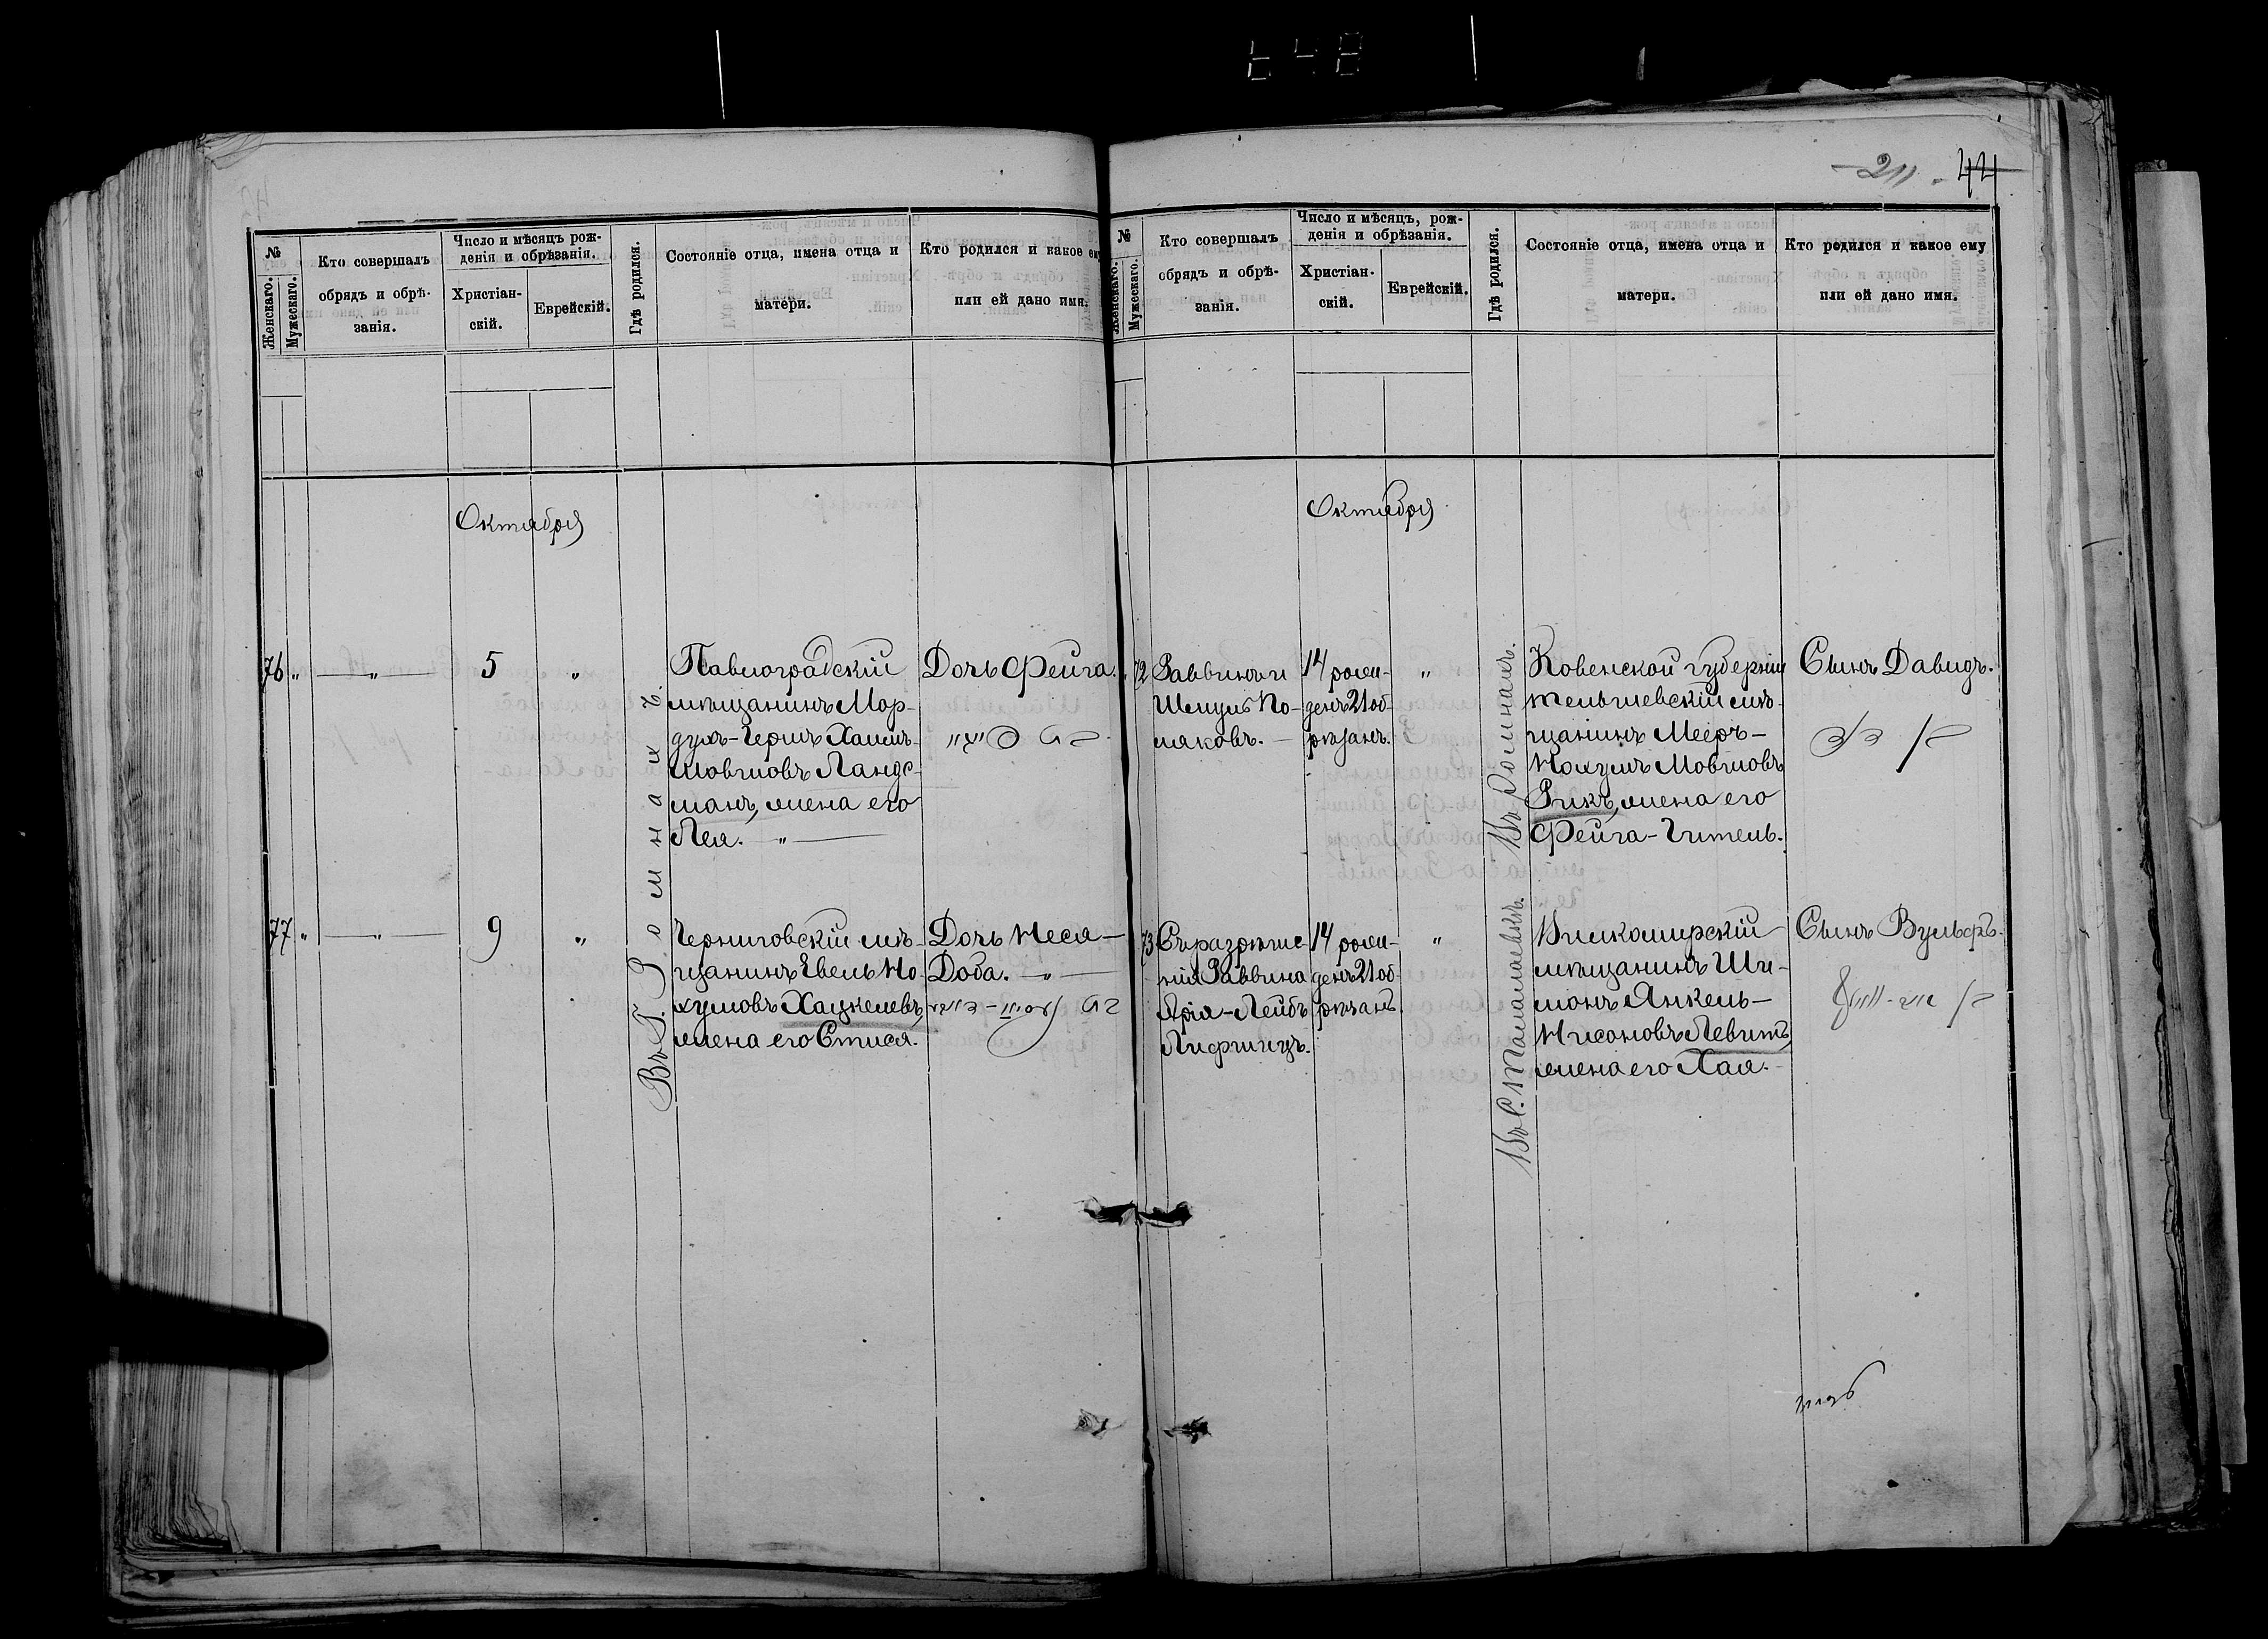 211. 44
№
Женскаго.
Мужескаго.
Кто совершалъ
обрядъ и обрѣ-
занія.
Число и мѣсяцъ рож-
денія и обрѣзанія.
Христіан-
скій.
Еврейскій.
Гдѣ родился.
Состояніе отца, имена отца и
матери.
Кто родился и какое ему
или ей дано имя.
Октября
76 " — " — 5 "
Въ Г. Роминахъ.
Павлоградскій
мѣщанинъ Мор-
духъ-Гершъ Хаимъ-
Мовшовъ Ландс-
манъ, жена его
Лея. "
Дочь Фейга.
בת פייגא
77 " — " — 9 "
Черниговскій мѣ-
щанинъ Евель Но-
хумовъ Хацкелевъ,
жена его Стися.
Дочь Неся-
Доба. — " —
בת
№
Женскаго.
Мужескаго.
Кто совершалъ
обрядъ и обрѣ-
занія.
Число и мѣсяцъ, рож-
денія и обрѣзанія.
Христіан-
скій.
Еврейскій.
Гдѣ родился.
Состояніе отца, имена отца и
матери.
Кто родился и какое ему
или ей дано имя.
Октября
" 72
Раввинъ и
Шмуль По-
ляковъ. —
14 рож-
денъ 21 об-
рѣзанъ.
"
Въ Роминахъ.
Ковенской губерніи
тельшевскій мѣ-
щанинъ Мееръ-
Нохумъ Мовшовъ
Рикъ, жена его
Фейга-Гитель.
Сынъ Давидъ.
בן דוד
73
Съ разрѣше-
нія Раввина
Арія-Лейбъ
Лифшицъ.
14 рож-
денъ 21 об-
рѣзанъ
"
Въ С. Талалаевкѣ.
Вилкомирскій
мѣщанинъ Ши-
монъ Янкель-
Нисоновъ Левитъ,
жена его Хая.
Сынъ Вульфъ.
בן